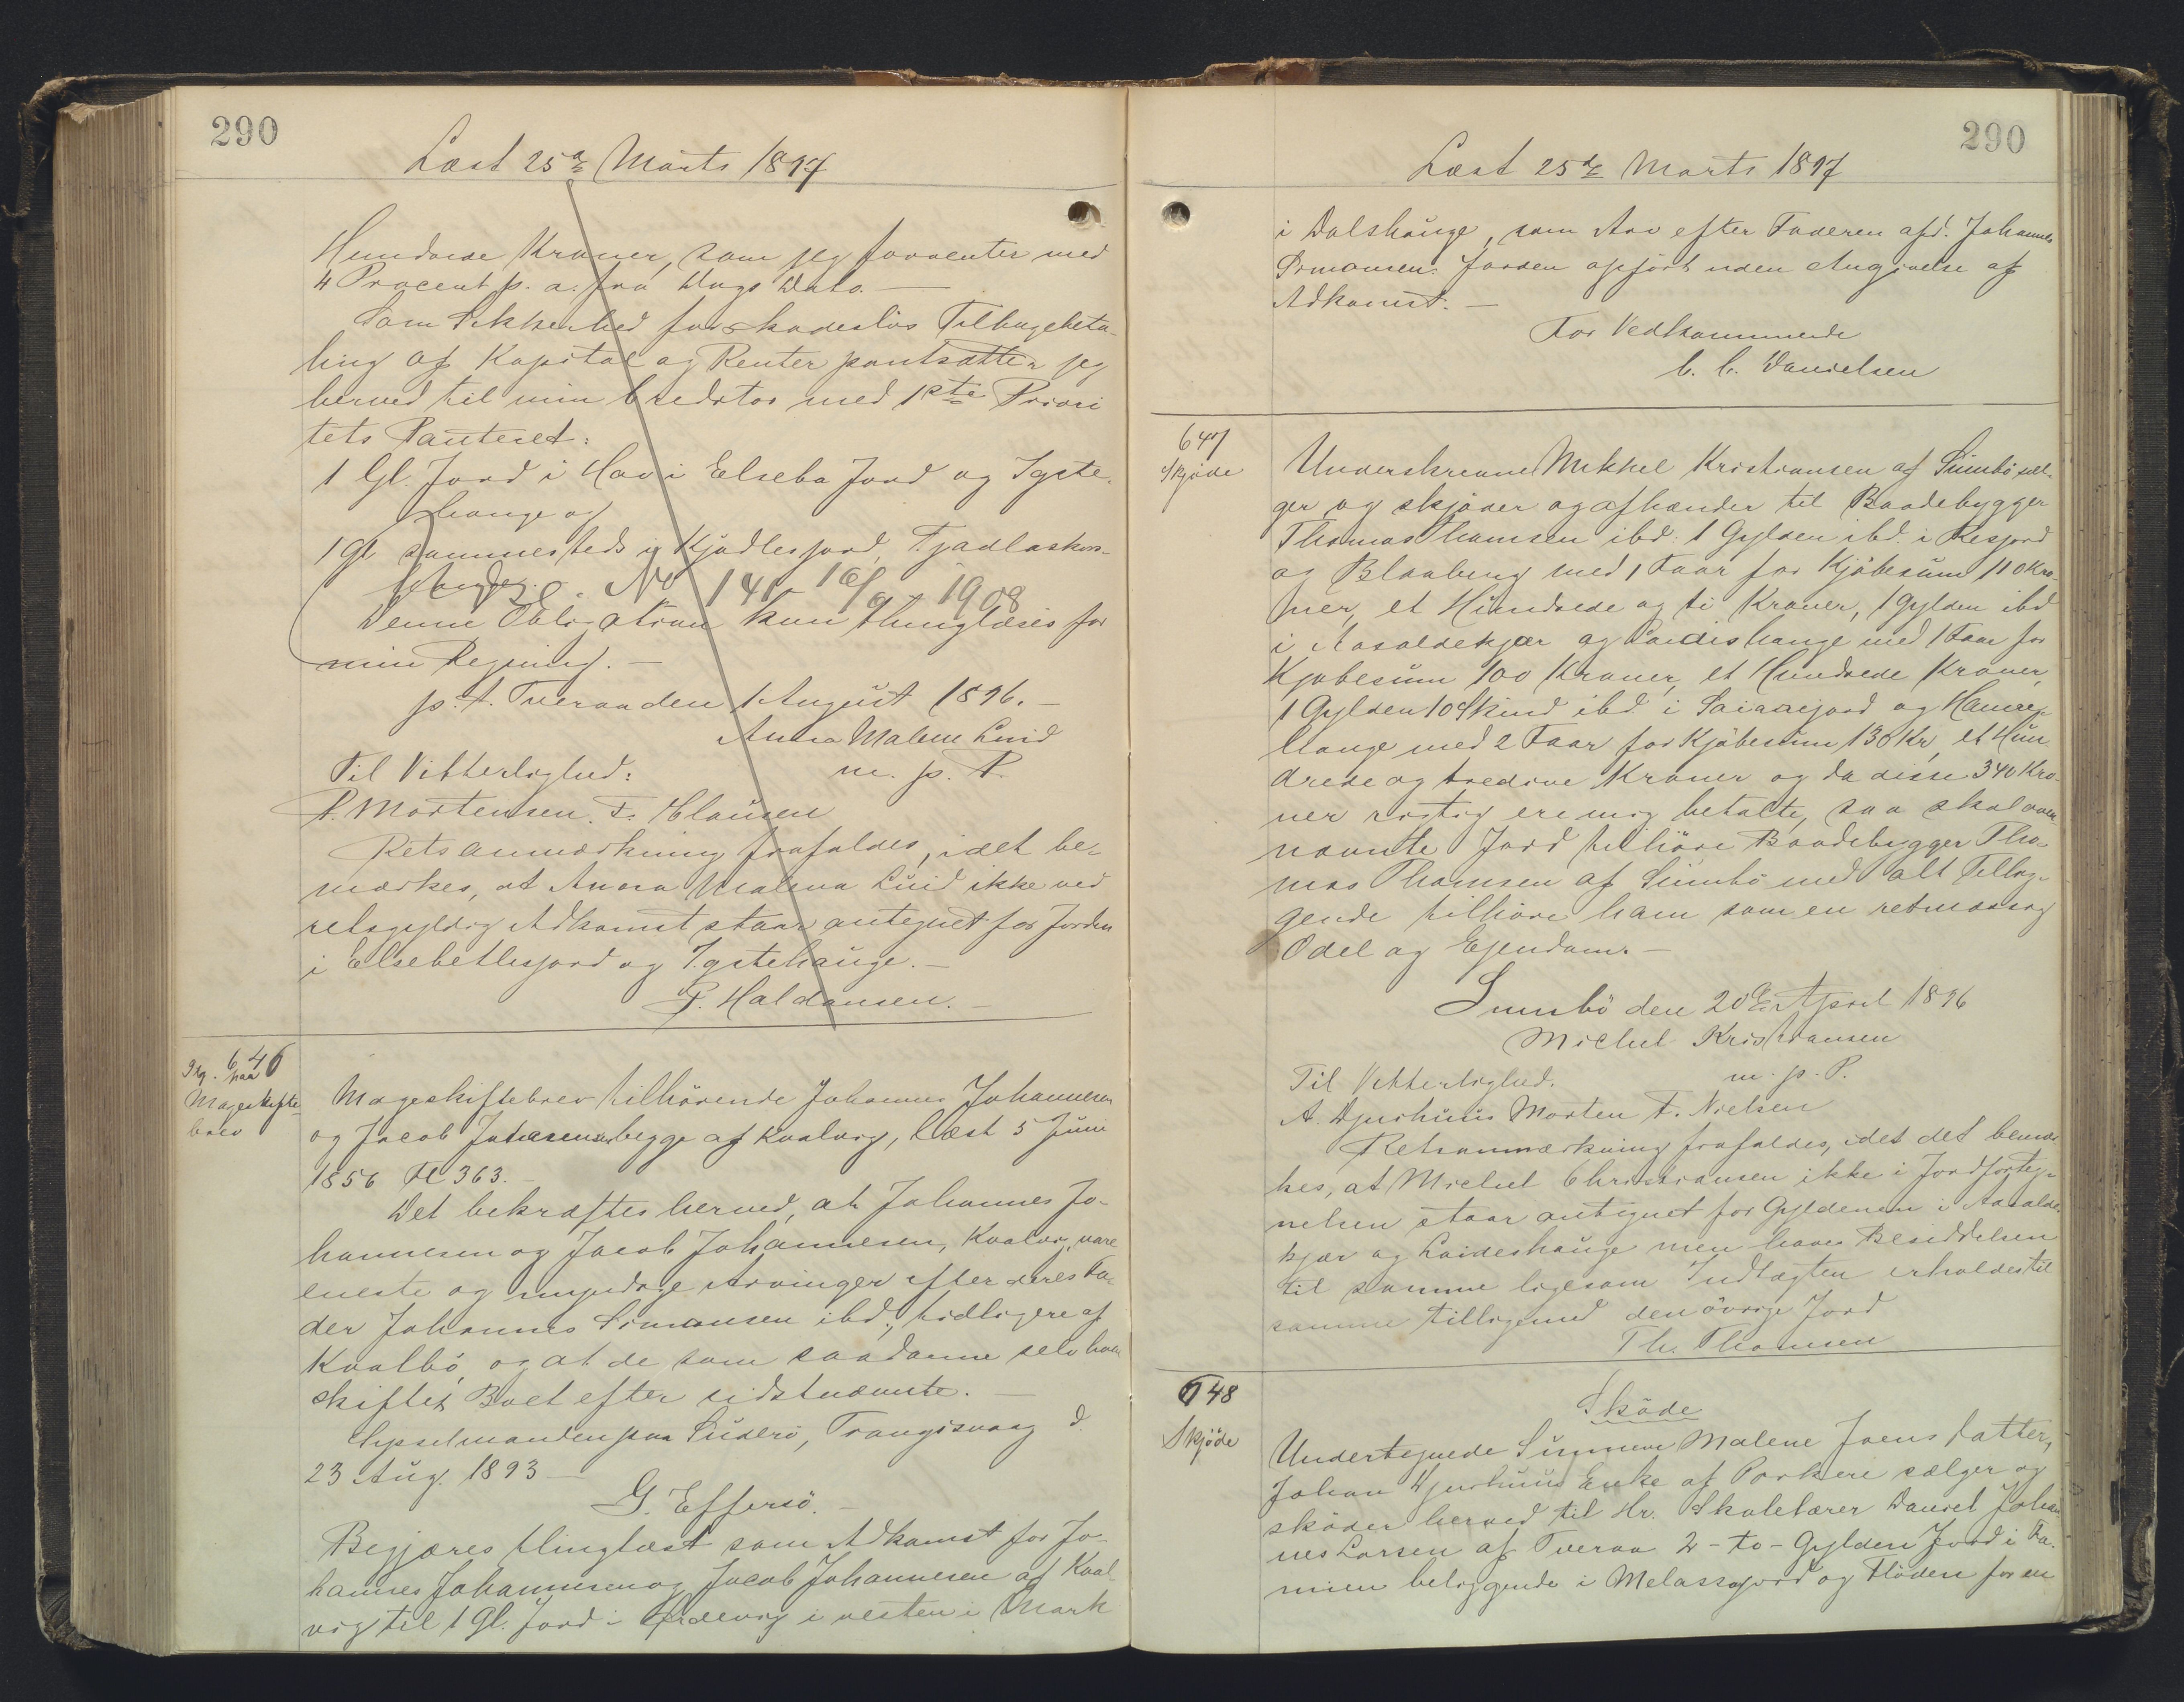 290
Læst 25de Marts 1897
Hundrede Kroner, som jeg forrenter med
4 Procent p. a. fra Dags Dato. —
Som Sikkerhed for skadeslös Tilbagebeta-
ling af Kapital og Renter pantsætter jeg
herved til min Creditor med 1ste Priori
tets Panteret:
1 Gl. Jord i Hov i Elseba Jord og Igste-
hauge og
1 Gl. sammesteds i Kjadlesjord, Fjadlaskor-
No 141 - 16/9 - 1908
Denne Obligation kan thinglæses for
min Regning. —
p. t. Tveraa den 1 August 1896. —
Anna Malene Luid
Til Vitterlighed: m. p. P.
P. Mortensen. F. Clausen
Retsanmærkning frafaldes, idet be-
mærkes, at Anna Malena Luid ikke ved
retsgyldig Adkomst staar antegnet for Jorden
i Elsebethesjord og Igstehauge. —
P. Haldansen. —
646
Mageskifte
brev
Mageskiftebrev tilhörende Johannes Johannesen
og Jacob Johannesen begge af Kvalvig, læst 5 Juni
1856 Fl 363. —
Det bekræftes herved, at Johannes Jo-
hannesen og Jacob Johannesen, Kvalvig, vare
eneste og myndige Arvinger efter deres Fa-
der Johannes Simonsen ibd., tidligere af
Kvalbö, og at de som saadanne selv have
skiftet Boet efter sidstnævnte. —
Sysselmanden paa Suderö, Trangisvaag d.
23 Aug. 1893 —
G. Effersö. —
Begjæres thinglæst som Adkomst for Jo-
hannes Johannesen og Jacob Johannesen af Kval
vig til 1 Gl. Jord i Ördevig i vesten i Mark
290
Læst 25de Marts 1897
i Dalshauge, som Arv efter Faderen afd. Johannes
Simonsen. Jorden opfört uden Angivelse af
Adkomst. —
For Vedkommende
C. C. Danielsen
647
Skjøde
Underskrevne Mikkel Kristiansen af Sumbö sæl-
ger og skjöder og afhænder til Baadebygger
Thomas Thomsen ibd. 1 Gylden ibd. i Kesjord
og Blaaberg med 1 Faar for Kjöbesum 110 Kro-
ner, et Hundrede og ti Kroner, 1 Gylden ibd
i Aasaldekjær og Laideshauge med 1 Faar for
Kjøbesum 100 Kroner, et Hundrede Kroner,
1 Gylden 10 Skind ibd i Jord og
hauge med 2 Faar for Kjöbesum 130 Kr, et Hun
drede og tredive Kroner og da disse 340 Kro-
ner rigtig ere mig betalte, saa skal oven
nævnte Jord tilhöre Baadebygger Tho-
mas Thomsen af Sumbö med alt Tillig-
gende tilhöre ham som en retmæssig
Odel og Ejendom. —
Sumbö den 20de April 1896
Michel Kristiansen
Til Vitterlighed. m. p. P.
A. Djurhuus Morten T. Nielsen
Retsanmærkning frafaldes, idet det bemær
kes, at Michel Christiansen ikke i Jordforteg-
nelsen staar antegnet for Gyldenen i Aasalde
kjær og Laideshauge men haver Besiddelsen
til samme ligesom Indtægten erholdes til
samme tilligemed den övrige Jord
Th. Thomsen
648
Skjöde
Sköde
Undertegnede Sunneva Malene Joens datter,
Johan Djurhuus Enke af Porkere sælger og
sköder herved til Hr. Skolelærer Daniel Johan
nes Larsen af Tveraa 2 - to - Gylden Jord i Fa-
mien beliggende i Melassajord og Flöden for en